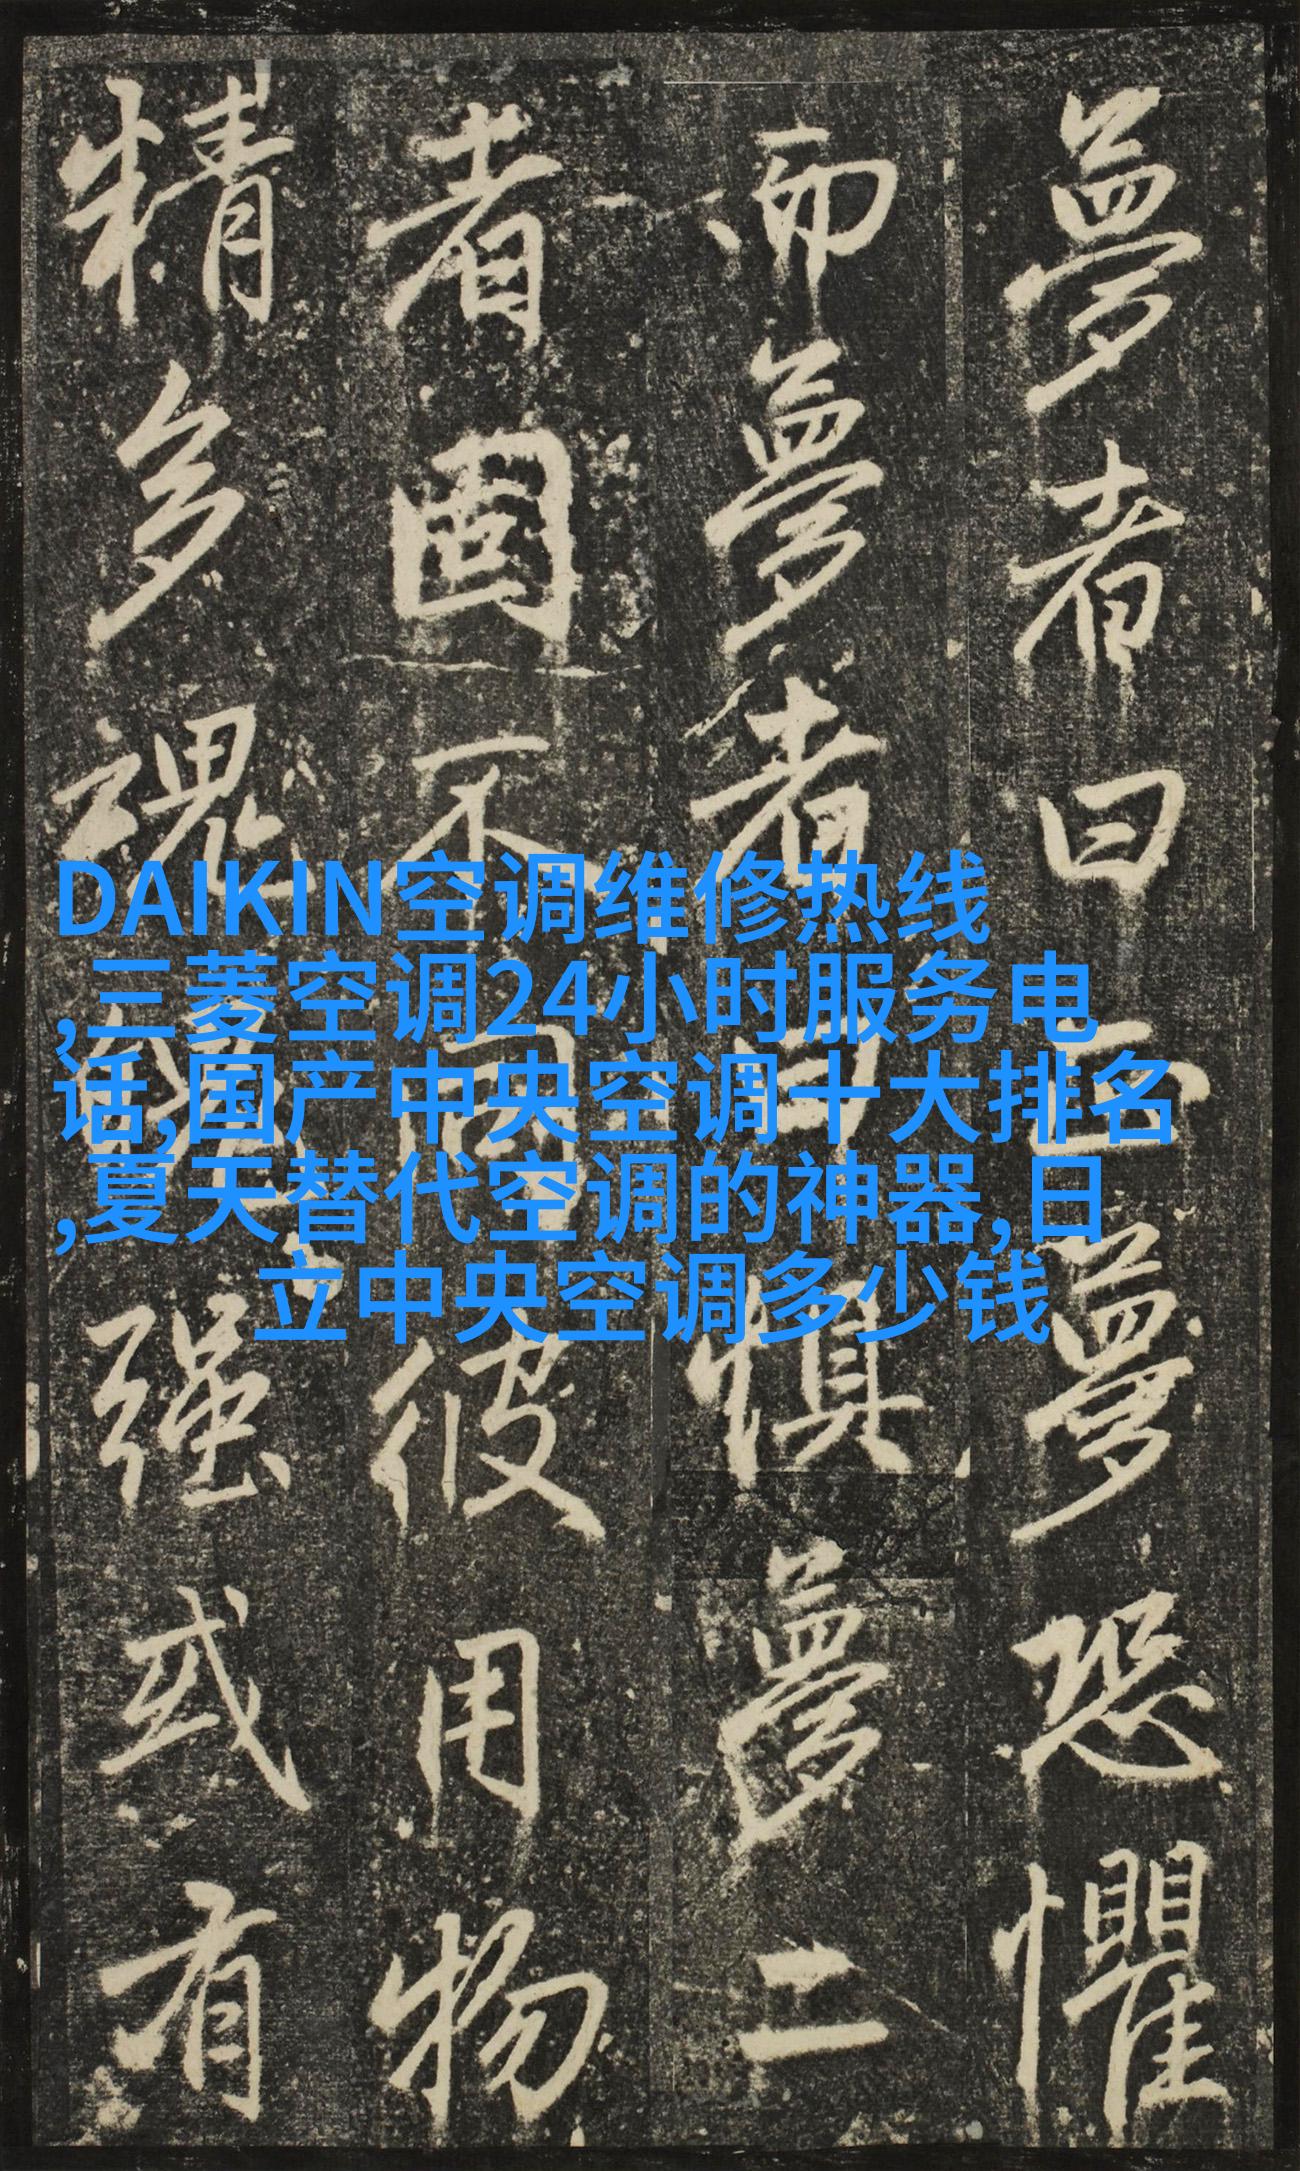 夢者曰正夢恐懼
而夢者曰惧夢二
者固不同彼用物
精多魂魄强或有
DAIKIN空调维修热线
,三菱空调24小时服务电
话,国产中央空调十大排名
,夏天替代空调的神器,日
立中央空调多少钱